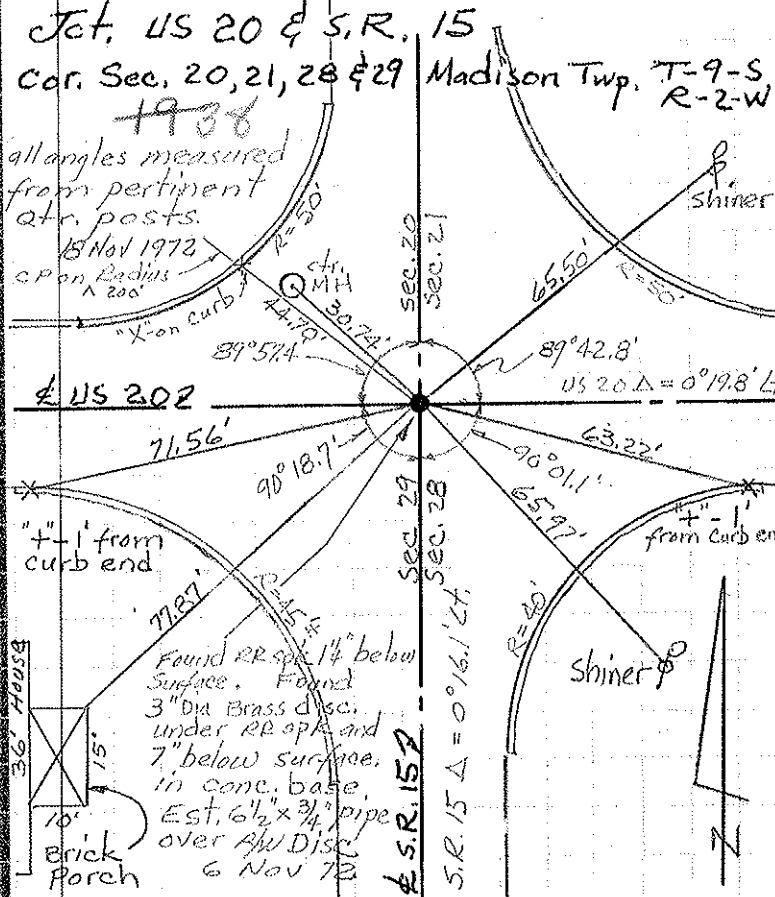 Jct. US 20 & S.R. 15
Cor. Sec. 20, 21, 28 & 29 Madison Twp. T-9-S
R-2-W
1938
all angles measured
from pertinent
Qtr. posts.
18 Nov 1972
CP on Radius
"X" on curb
R=50'
ctr.
MH
44.70'
30.74'
Sec. 20
Sec. 21
65.50'
R=50'
Shiner
89°57.4
89°42.8'
US 20 Δ = 0°19.8' Lt
℄ US 20
71.56'
90°18.7'
90°01.1'
63.22'
65.97'
Sec. 29
Sec. 28
"+"-1' from
curb end
"+"-1'
from curb en
77.87'
R=45'±
R=40'
Shiner
Found RR spk 1¼" below
Surface. Found
3" Dia Brass disc.
under RR spk and
7" below surface.
in conc. base
Est. 6½" x ¾" pipe
over R/W Disc
6 Nov 72
36' House
15'
10'
Brick
Porch
℄ S.R. 15
S.R. 15 Δ = 0°16.1' Lt.
N